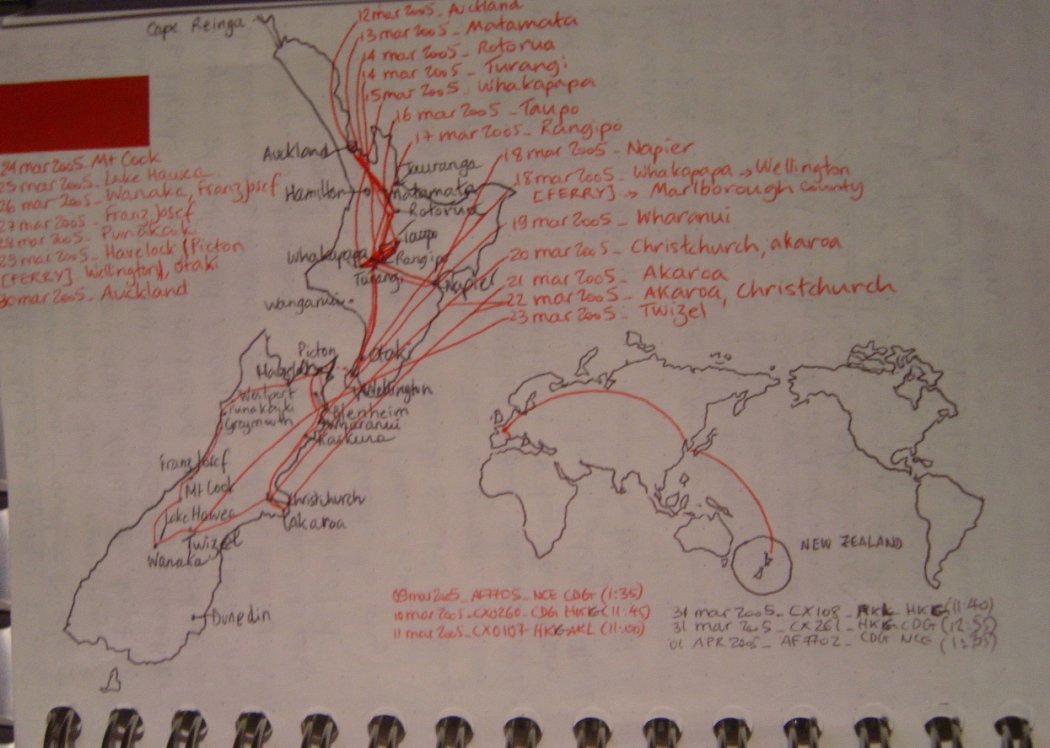 Cape Reinga
12 mar 2005 - Auckland
13 mar 2005 - Matamata
14 mar 2005 - Rotorua
14 mar 2005 - Turangi
15 mar 2005 - Whakapapa
16 mar 2005 - Taupo
17 mar 2005 - Rangipo
18 mar 2005 - Napier
18 mar 2005 - Whakapapa → Wellington
[FERRY] → Marlborough County
19 mar 2005 - Wharanui
20 mar 2005 - Christchurch, akaroa
21 mar 2005 - Akaroa
22 mar 2005 - Akaroa, Christchurch
23 mar 2005 - Twizel
24 mar 2005 - Mt Cook
25 mar 2005 - Lake Hawea
26 mar 2005 - Wanaka, Franz Josef
27 mar 2005 - Franz Josef
28 mar 2005 - Punakaiki
29 mar 2005 - Havelock (Picton
[FERRY], Wellington), otaki
30 mar 2005 - Auckland
Auckland
Tauranga
Hamilton
Matamata
Rotorua
Taupo
Whakapapa
Rangipo
Turangi
Napier
Wanganui
Otaki
Picton
Wellington
Westport
Punakaiki
Blenheim
Greymouth
Wharanui
Kaikura
Franz Josef
Mt Cook
Christchurch
Lake Hawea
akaroa
Twizel
Wanaka
Dunedin
NEW ZEALAND
09 mar 2005 - AF7705 - NCE CDG (1:35)
10 mar 2005 - CX0260 - CDG HKG (11:45)
11 mar 2005 - CX0107 - HKG AKL (11:00)
31 mar 2005 - CX108 - AKL HKG (11:40)
31 mar 2005 - CX261 - HKG CDG (12:55)
01 APR 2005 - AF7702 - CDG NCE